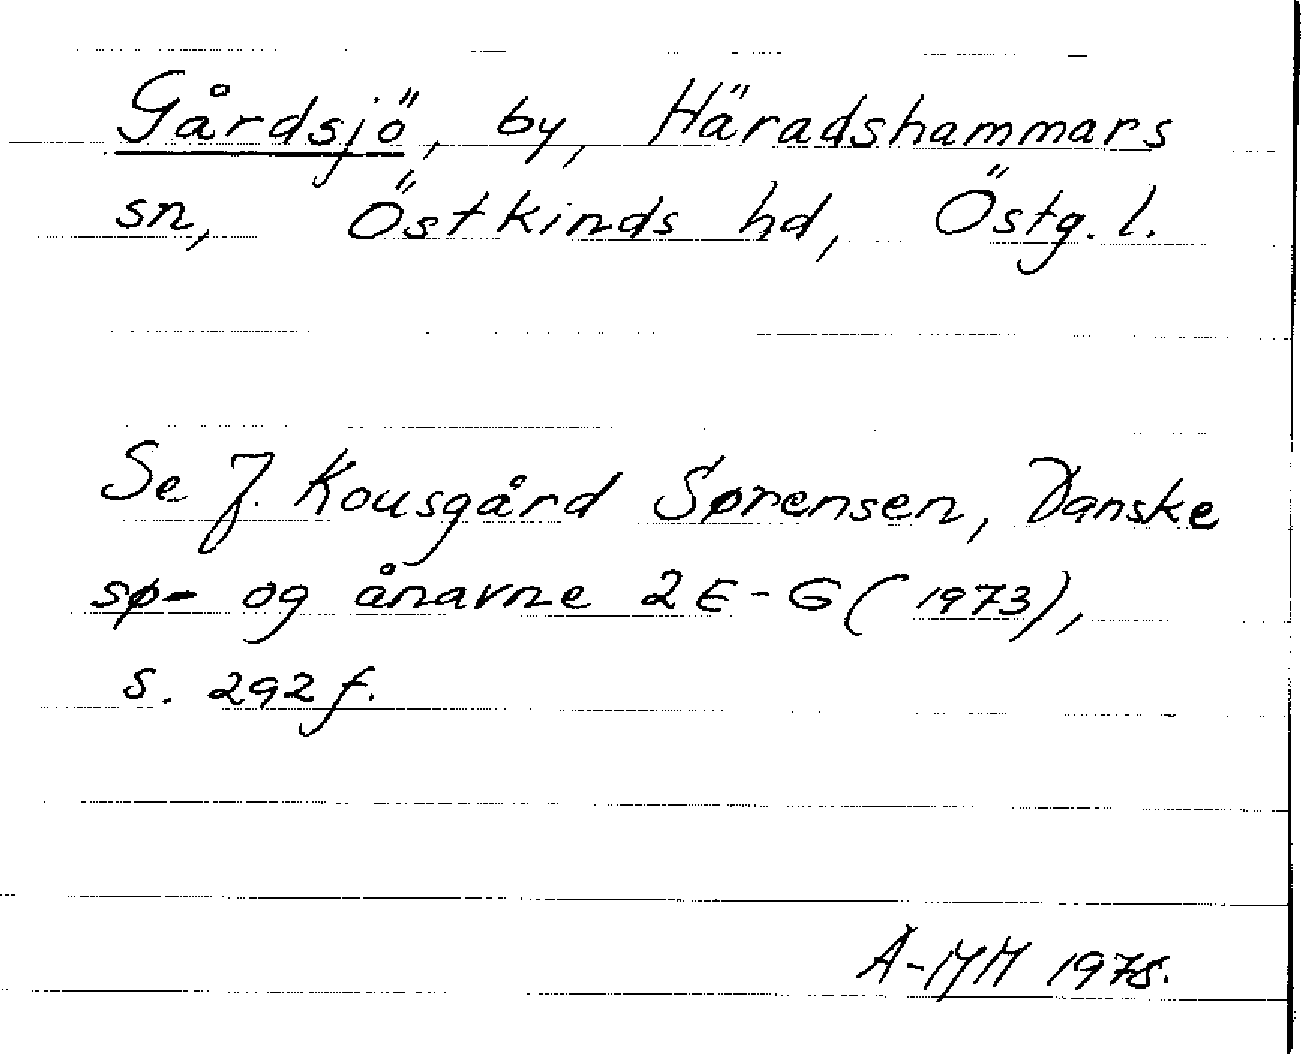 Gårdsjö, by, Häradshammars
sn, Östkinds hd, Östg. l.
Se J. Kousgård Sørensen, Danske
sø- og ånavne 2 E-G (1973),
s. 292 f.
A-MM 1975.